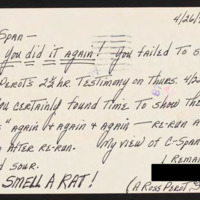 4/26/
Span—
You did it again! You failed to s
Perot's 2½ hr Testimony on Thurs. 4/2
ou certainly found time to show the
s" again & again & again — re-run a
n after re-run. My view of C-Span
d sour. I rema
SMELL A RAT!
(A Ross Perot S